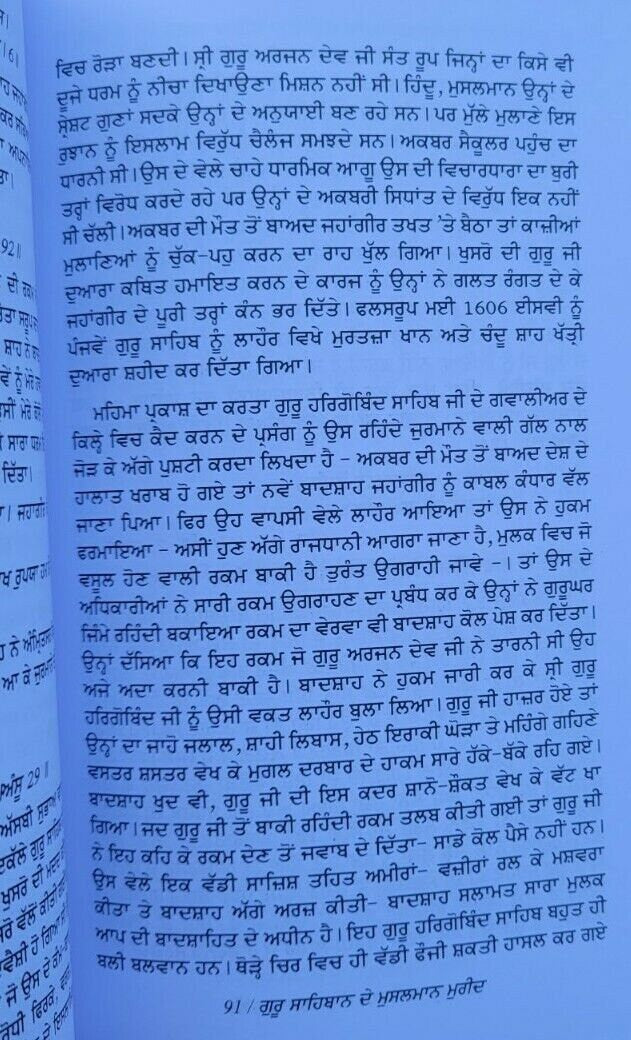 ਵਿਚ ਰੋੜਾ ਬਣਦੀ। ਸ੍ਰੀ ਗੁਰੂ ਅਰਜਨ ਦੇਵ ਜੀ ਸੰਤ ਰੂਪ ਜਿਨ੍ਹਾਂ ਦਾ ਕਿਸੇ ਵੀ
ਦੂਜੇ ਧਰਮ ਨੂੰ ਨੀਚਾ ਦਿਖਾਉਣਾ ਮਿਸ਼ਨ ਨਹੀਂ ਸੀ। ਹਿੰਦੂ, ਮੁਸਲਮਾਨ ਉਨ੍ਹਾਂ ਦੇ
ਸ੍ਰੇਸ਼ਟ ਗੁਣਾਂ ਸਦਕੇ ਉਨ੍ਹਾਂ ਦੇ ਅਨੁਯਾਈ ਬਣ ਰਹੇ ਸਨ। ਪਰ ਮੁੱਲੇ ਮੁਲਾਣੇ ਇਸ
ਰੁਝਾਨ ਨੂੰ ਇਸਲਾਮ ਵਿਰੁੱਧ ਚੈਲੰਜ ਸਮਝਦੇ ਸਨ। ਅਕਬਰ ਸੈਕੂਲਰ ਪਹੁੰਚ ਦਾ
ਧਾਰਨੀ ਸੀ। ਉਸ ਦੇ ਵੇਲੇ ਚਾਹੇ ਧਾਰਮਿਕ ਆਗੂ ਉਸ ਦੀ ਵਿਚਾਰਧਾਰਾ ਦਾ ਬੁਰੀ
ਤਰ੍ਹਾਂ ਵਿਰੋਧ ਕਰਦੇ ਰਹੇ ਪਰ ਉਨ੍ਹਾਂ ਦੇ ਅਕਬਰੀ ਸਿਧਾਂਤ ਦੇ ਵਿਰੁੱਧ ਇਕ ਨਹੀਂ
ਸੀ ਚੱਲੀ। ਅਕਬਰ ਦੀ ਮੌਤ ਤੋਂ ਬਾਅਦ ਜਹਾਂਗੀਰ ਤਖਤ 'ਤੇ ਬੈਠਾ ਤਾਂ ਕਾਜ਼ੀਆਂ
ਮੁਲਾਣਿਆਂ ਨੂੰ ਚੁੱਕ-ਪਹੁ ਕਰਨ ਦਾ ਰਾਹ ਖੁੱਲ ਗਿਆ। ਖੁਸਰੋ ਦੀ ਗੁਰੂ ਜੀ
ਦੁਆਰਾ ਕਥਿਤ ਹਮਾਇਤ ਕਰਨ ਦੇ ਕਾਰਜ ਨੂੰ ਉਨ੍ਹਾਂ ਨੇ ਗਲਤ ਰੰਗਤ ਦੇ ਕੇ
ਜਹਾਂਗੀਰ ਦੇ ਪੂਰੀ ਤਰ੍ਹਾਂ ਕੰਨ ਭਰ ਦਿੱਤੇ। ਫਲਸਰੂਪ ਮਈ 1606 ਈਸਵੀ ਨੂੰ
ਪੰਜਵੇਂ ਗੁਰੂ ਸਾਹਿਬ ਨੂੰ ਲਾਹੌਰ ਵਿਖੇ ਮੁਰਤਜ਼ਾ ਖਾਨ ਅਤੇ ਚੰਦੂ ਸ਼ਾਹ ਖੱਤ੍ਰੀ
ਦੁਆਰਾ ਸ਼ਹੀਦ ਕਰ ਦਿੱਤਾ ਗਿਆ।
ਮਹਿਮਾ ਪ੍ਰਕਾਸ਼ ਦਾ ਕਰਤਾ ਗੁਰੂ ਹਰਿਗੋਬਿੰਦ ਸਾਹਿਬ ਜੀ ਦੇ ਗਵਾਲੀਅਰ ਦੇ
ਕਿਲ੍ਹੇ ਵਿਚ ਕੈਦ ਕਰਨ ਦੇ ਪ੍ਰਸੰਗ ਨੂੰ ਉਸ ਰਹਿੰਦੇ ਜੁਰਮਾਨੇ ਵਾਲੀ ਗੱਲ ਨਾਲ
ਜੋੜ ਕੇ ਅੱਗੇ ਪੁਸ਼ਟੀ ਕਰਦਾ ਲਿਖਦਾ ਹੈ - ਅਕਬਰ ਦੀ ਮੌਤ ਤੋਂ ਬਾਅਦ ਦੇਸ਼ ਦੇ
ਹਾਲਾਤ ਖਰਾਬ ਹੋ ਗਏ ਤਾਂ ਨਵੇਂ ਬਾਦਸ਼ਾਹ ਜਹਾਂਗੀਰ ਨੂੰ ਕਾਬਲ ਕੰਧਾਰ ਵੱਲ
ਜਾਣਾ ਪਿਆ। ਫਿਰ ਉਹ ਵਾਪਸੀ ਵੇਲੇ ਲਾਹੌਰ ਆਇਆ ਤਾਂ ਉਸ ਨੇ ਹੁਕਮ
ਫਰਮਾਇਆ - ਅਸੀਂ ਹੁਣ ਅੱਗੇ ਰਾਜਧਾਨੀ ਆਗਰਾ ਜਾਣਾ ਹੈ, ਮੁਲਕ ਵਿਚ ਜੋ
ਵਸੂਲ ਹੋਣ ਵਾਲੀ ਰਕਮ ਬਾਕੀ ਹੈ ਤੁਰੰਤ ਉਗਰਾਹੀ ਜਾਵੇ -। ਤਾਂ ਉਸ ਦੇ
ਅਧਿਕਾਰੀਆਂ ਨੇ ਸਾਰੀ ਰਕਮ ਉਗਰਾਹਣ ਦਾ ਪ੍ਰਬੰਧ ਕਰ ਕੇ ਉਨ੍ਹਾਂ ਨੇ ਗੁਰੂਘਰ
ਜਿੰਮੇ ਰਹਿੰਦੀ ਬਕਾਇਆ ਰਕਮ ਦਾ ਵੇਰਵਾ ਵੀ ਬਾਦਸ਼ਾਹ ਕੋਲ ਪੇਸ਼ ਕਰ ਦਿੱਤਾ।
ਉਨ੍ਹਾਂ ਦੱਸਿਆ ਕਿ ਇਹ ਰਕਮ ਜੋ ਗੁਰੂ ਅਰਜਨ ਦੇਵ ਜੀ ਨੇ ਤਾਰਨੀ ਸੀ ਉਹ
ਅਜੇ ਅਦਾ ਕਰਨੀ ਬਾਕੀ ਹੈ। ਬਾਦਸ਼ਾਹ ਨੇ ਹੁਕਮ ਜਾਰੀ ਕਰ ਕੇ ਸ੍ਰੀ ਗੁਰੂ
ਹਰਿਗੋਬਿੰਦ ਜੀ ਨੂੰ ਉਸੀ ਵਕਤ ਲਾਹੌਰ ਬੁਲਾ ਲਿਆ। ਗੁਰੂ ਜੀ ਹਾਜ਼ਰ ਹੋਏ ਤਾਂ
ਉਨ੍ਹਾਂ ਦਾ ਜਾਹੋ ਜਲਾਲ, ਸ਼ਾਹੀ ਲਿਬਾਸ, ਹੇਠ ਇਰਾਕੀ ਘੋੜਾ ਤੇ ਮਹਿੰਗੇ ਗਹਿਣੇ
ਵਸਤਰ ਸ਼ਸਤਰ ਵੇਖ ਕੇ ਮੁਗਲ ਦਰਬਾਰ ਦੇ ਹਾਕਮ ਸਾਰੇ ਹੱਕੇ-ਬੱਕੇ ਰਹਿ ਗਏ।
ਬਾਦਸ਼ਾਹ ਖੁਦ ਵੀ, ਗੁਰੂ ਜੀ ਦੀ ਇਸ ਕਦਰ ਸ਼ਾਨੋ-ਸ਼ੌਕਤ ਵੇਖ ਕੇ ਵੱਟ ਖਾ
ਗਿਆ। ਜਦ ਗੁਰੂ ਜੀ ਤੋਂ ਬਾਕੀ ਰਹਿੰਦੀ ਰਕਮ ਤਲਬ ਕੀਤੀ ਗਈ ਤਾਂ ਗੁਰੂ ਜੀ
ਨੇ ਇਹ ਕਹਿ ਕੇ ਰਕਮ ਦੇਣ ਤੋਂ ਜਵਾਬ ਦੇ ਦਿੱਤਾ- ਸਾਡੇ ਕੋਲ ਪੈਸੇ ਨਹੀਂ ਹਨ।
ਉਸ ਵੇਲੇ ਇਕ ਵੱਡੀ ਸਾਜ਼ਿਸ਼ ਤਹਿਤ ਅਮੀਰਾਂ- ਵਜ਼ੀਰਾਂ ਰਲ ਕੇ ਮਸ਼ਵਰਾ
ਕੀਤਾ ਤੇ ਬਾਦਸ਼ਾਹ ਅੱਗੇ ਅਰਜ਼ ਕੀਤੀ- ਬਾਦਸ਼ਾਹ ਸਲਾਮਤ ਸਾਰਾ ਮੁਲਕ
ਆਪ ਦੀ ਬਾਦਸ਼ਾਹਿਤ ਦੇ ਅਧੀਨ ਹੈ। ਇਹ ਗੁਰੂ ਹਰਿਗੋਬਿੰਦ ਸਾਹਿਬ ਬਹੁਤ ਹੀ
ਬਲੀ ਬਲਵਾਨ ਹਨ। ਥੋੜ੍ਹੇ ਚਿਰ ਵਿਚ ਹੀ ਵੱਡੀ ਫੌਜੀ ਸ਼ਕਤੀ ਹਾਸਲ ਕਰ ਗਏ
91 / ਗੁਰੂ ਸਾਹਿਬਾਨ ਦੇ ਮੁਸਲਮਾਨ ਮੁਰੀਦ